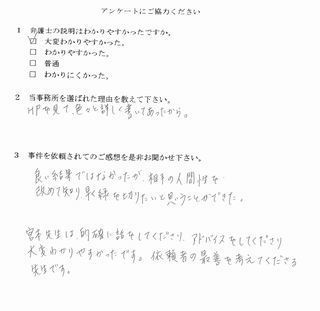 アンケートにご協力ください
1 弁護士の説明はわかりやすかったですか。
☑ 大変わかりやすかった。
□ わかりやすかった。
□ 普通
□ わかりにくかった。
2 当事務所を選ばれた理由を教えて下さい。
HPを見て、色々と詳しく書いてあったから。
3 事件を依頼されてのご感想を是非お聞かせ下さい。
良い結果ではなかったが、相手の人間性を
改めて知り、縁を切りたいと思うことができた。
宮本先生は的確に話をしてくださり、アドバイスをしてくださり
大変わかりやすかったです。依頼者の最善を考えてくださる
先生です。